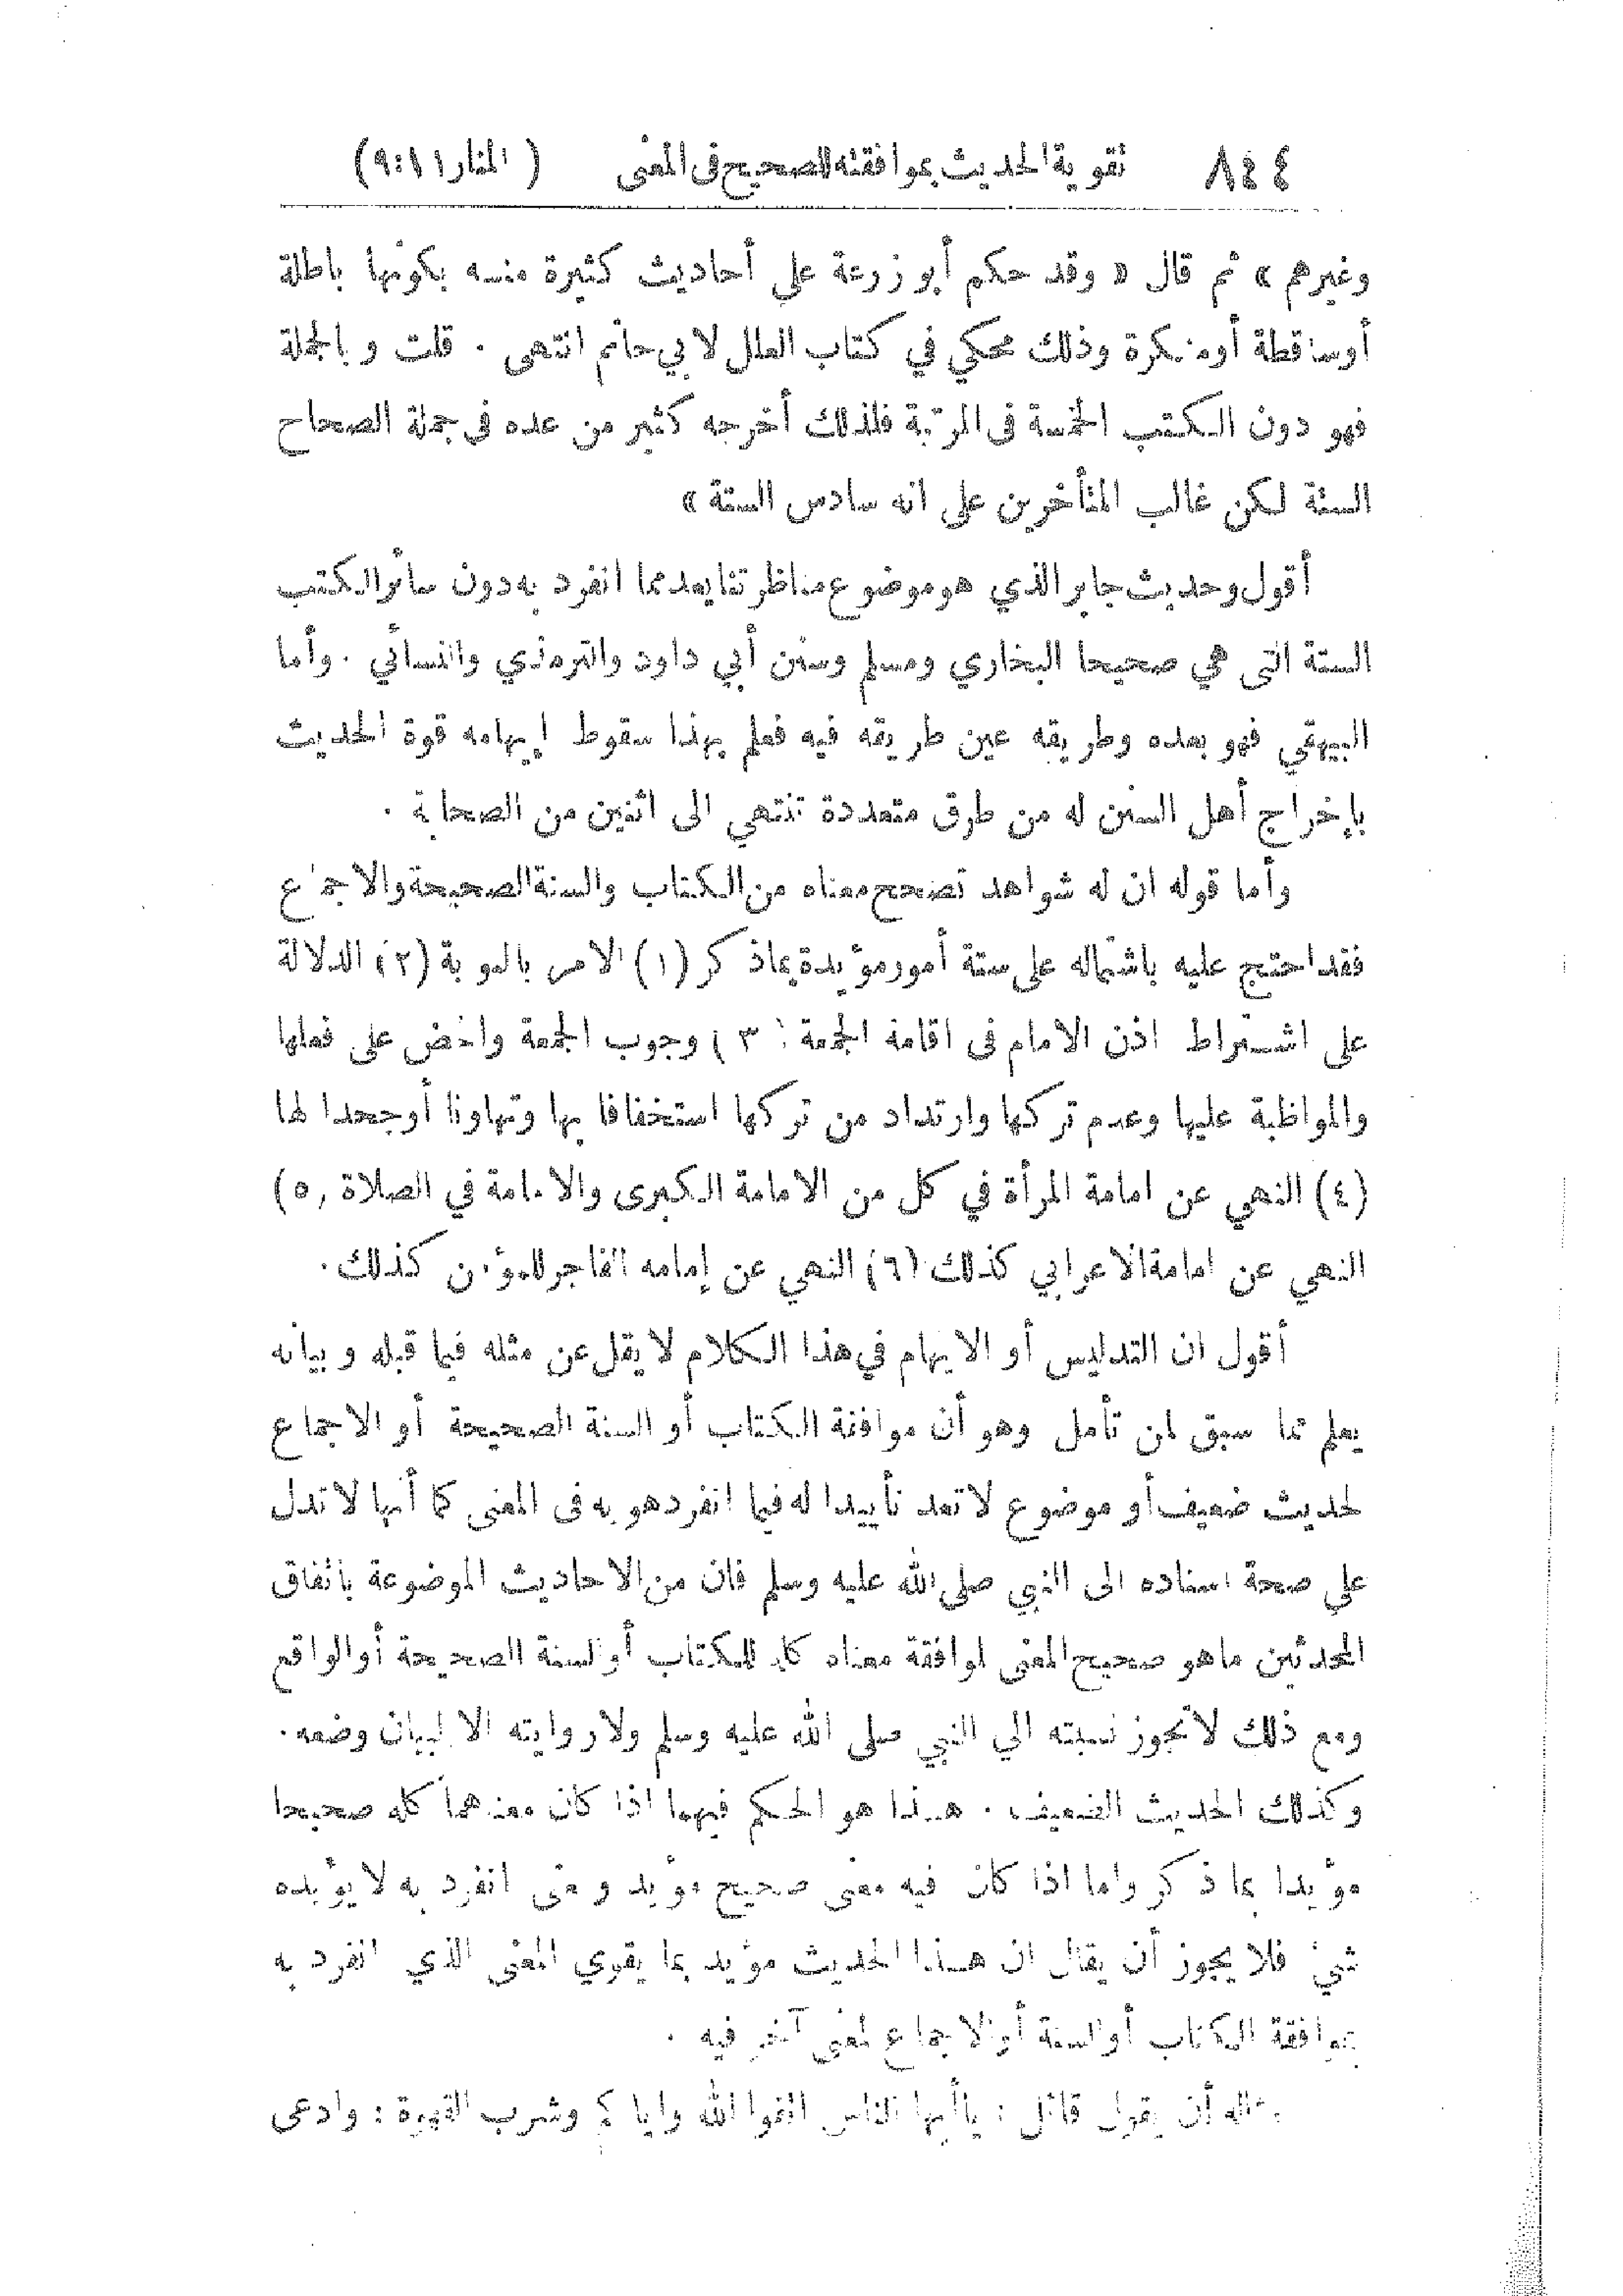 ٨٤٤ تقوية الحديث بموافقته للصحيح فى المعنى ( المنار ٩:١١)
وغيرهم » ثم قال « وقد حكم أبو زرعة على أحاديث كثيرة منه بكونها باطلة
أوساقطة أومنكرة وذلك محكي في كتاب العلل لابي حاتم انتهى . قلت وبالجملة
فهو دون الكتب الخمسة فى المرتبة فلذلك أخرجه كثير من عده فى جملة الصحاح
الستة لكن غالب المتأخرين على انه سادس الستة »
أقول وحديث جابر الذي هو موضوع مناظرتنا يعد مما انفرد به دون سائر الكتب
الستة التى هي صحيحا البخاري ومسلم وسنن أبي داود والترمذي والنسائي . وأما
البيهقي فهو بعده وطريقه عين طريقه فيه فعلم بهذا سقوط إيهامه قوة الحديث
بإخراج أهل السنن له من طرق متعددة تنتهي الى اثنين من الصحابة .
وأما قوله ان له شواهد تصحح معناه من الكتاب والسنة الصحيحة والاجماع
فقد احتج عليه باشتماله على ستة أمور مؤيدة بماذكر (١) الامر بالتوبة (٢) الدلالة
على اشتراط اذن الامام فى اقامة الجمعة (٣) وجوب الجمعة والحض على فعلها
والمواظبة عليها وعدم تركها وارتداد من تركها استخفافا بها وتهاونا أوجحدا لها
(٤) النهي عن امامة المرأة في كل من الامامة الكبرى والامامة في الصلاة (٥)
النهي عن امامة الاعرابي كذلك (٦) النهي عن إمامه الفاجر للمؤمن كذلك.
أقول ان التدليس أو الايهام في هذا الكلام لا يقل عن مثله فيما قبله وبيانه
يعلم مما سبق لمن تأمل وهو أن موافقة الكتاب أو السنة الصحيحة أو الاجماع
لحديث ضعيف أو موضوع لا تعد تأييدا له فيما انفرد هو به فى المعنى كما أنها لا تدل
على صحة اسناده الى النبي صلى الله عليه وسلم فان من الاحاديث الموضوعة باتفاق
المحدثين ماهو صحيح المعنى لموافقة معناه كله للكتاب أو السنة الصحيحة أو الواقع
ومع ذلك لا تجوز نسبته الي النبي صلى الله عليه وسلم ولا روايته الا لبيان وضعه.
وكذلك الحديث الضعيف . هذا هو الحكم فيهما اذا كان معناهما كله صحيحا
مؤيدا بما ذكر واما اذا كان فيه معنى صحيح مؤيد ومعنى انفرد به لا يؤيده
شيء فلا يجوز أن يقال ان هذا الحديث مؤيد بما يقوي المعنى الذي انفرد به
بموافقة الكتاب أو السنة أو الاجماع لمعنى آخر فيه .
مثاله أن يقول قائل : ياأيها الناس اتقوا الله واياكم وشرب القهوة : وادعى